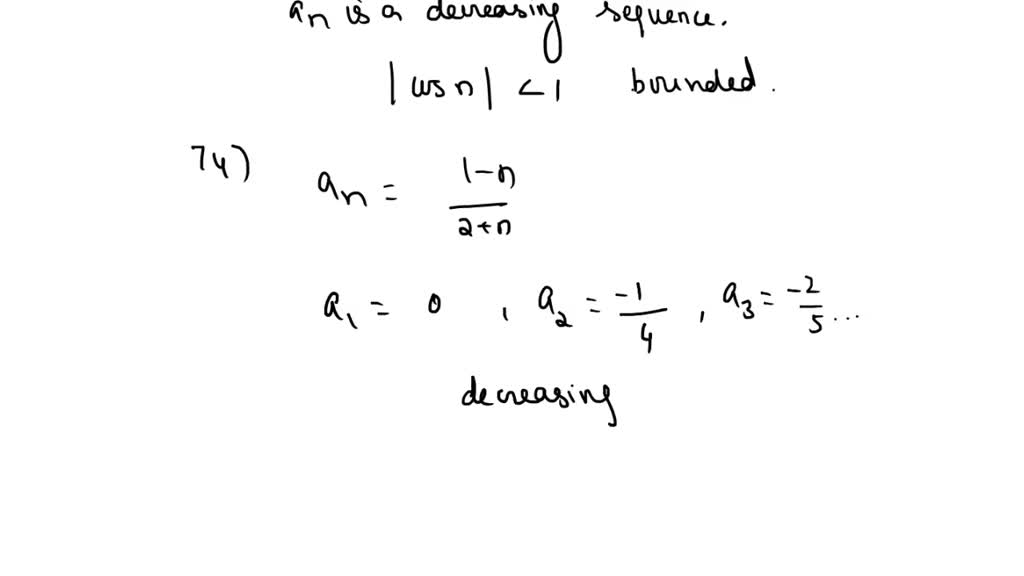 an is a decreasing sequence.
|cos n| < 1 bounded.
74) an = 1-n / 2+n
a1 = 0 , a2 = -1/4 , a3 = -2/5 ...
decreasing